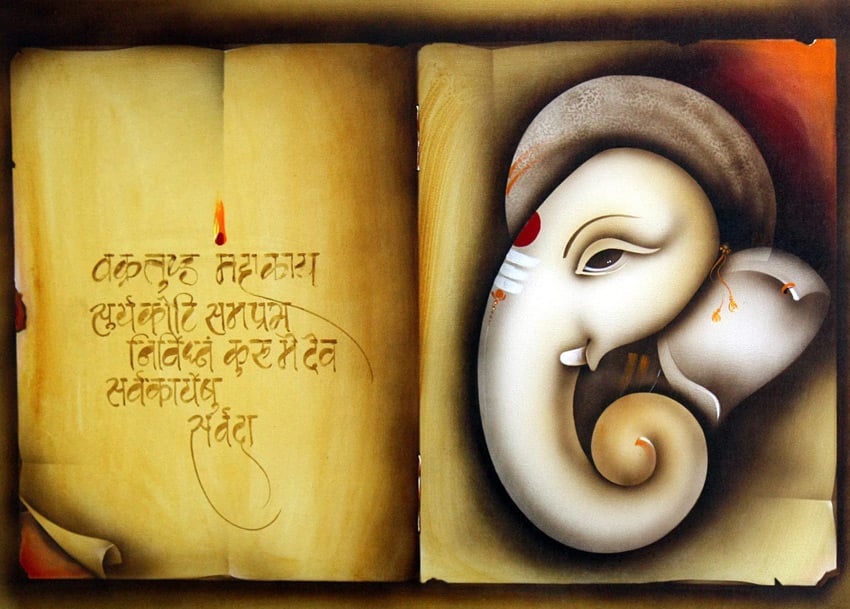 वक्रतुण्ड महाकाय
सुर्यकोटि समप्रभ
निर्विघ्नं कुरु मे देव
सर्वकार्येषु
सर्वदा